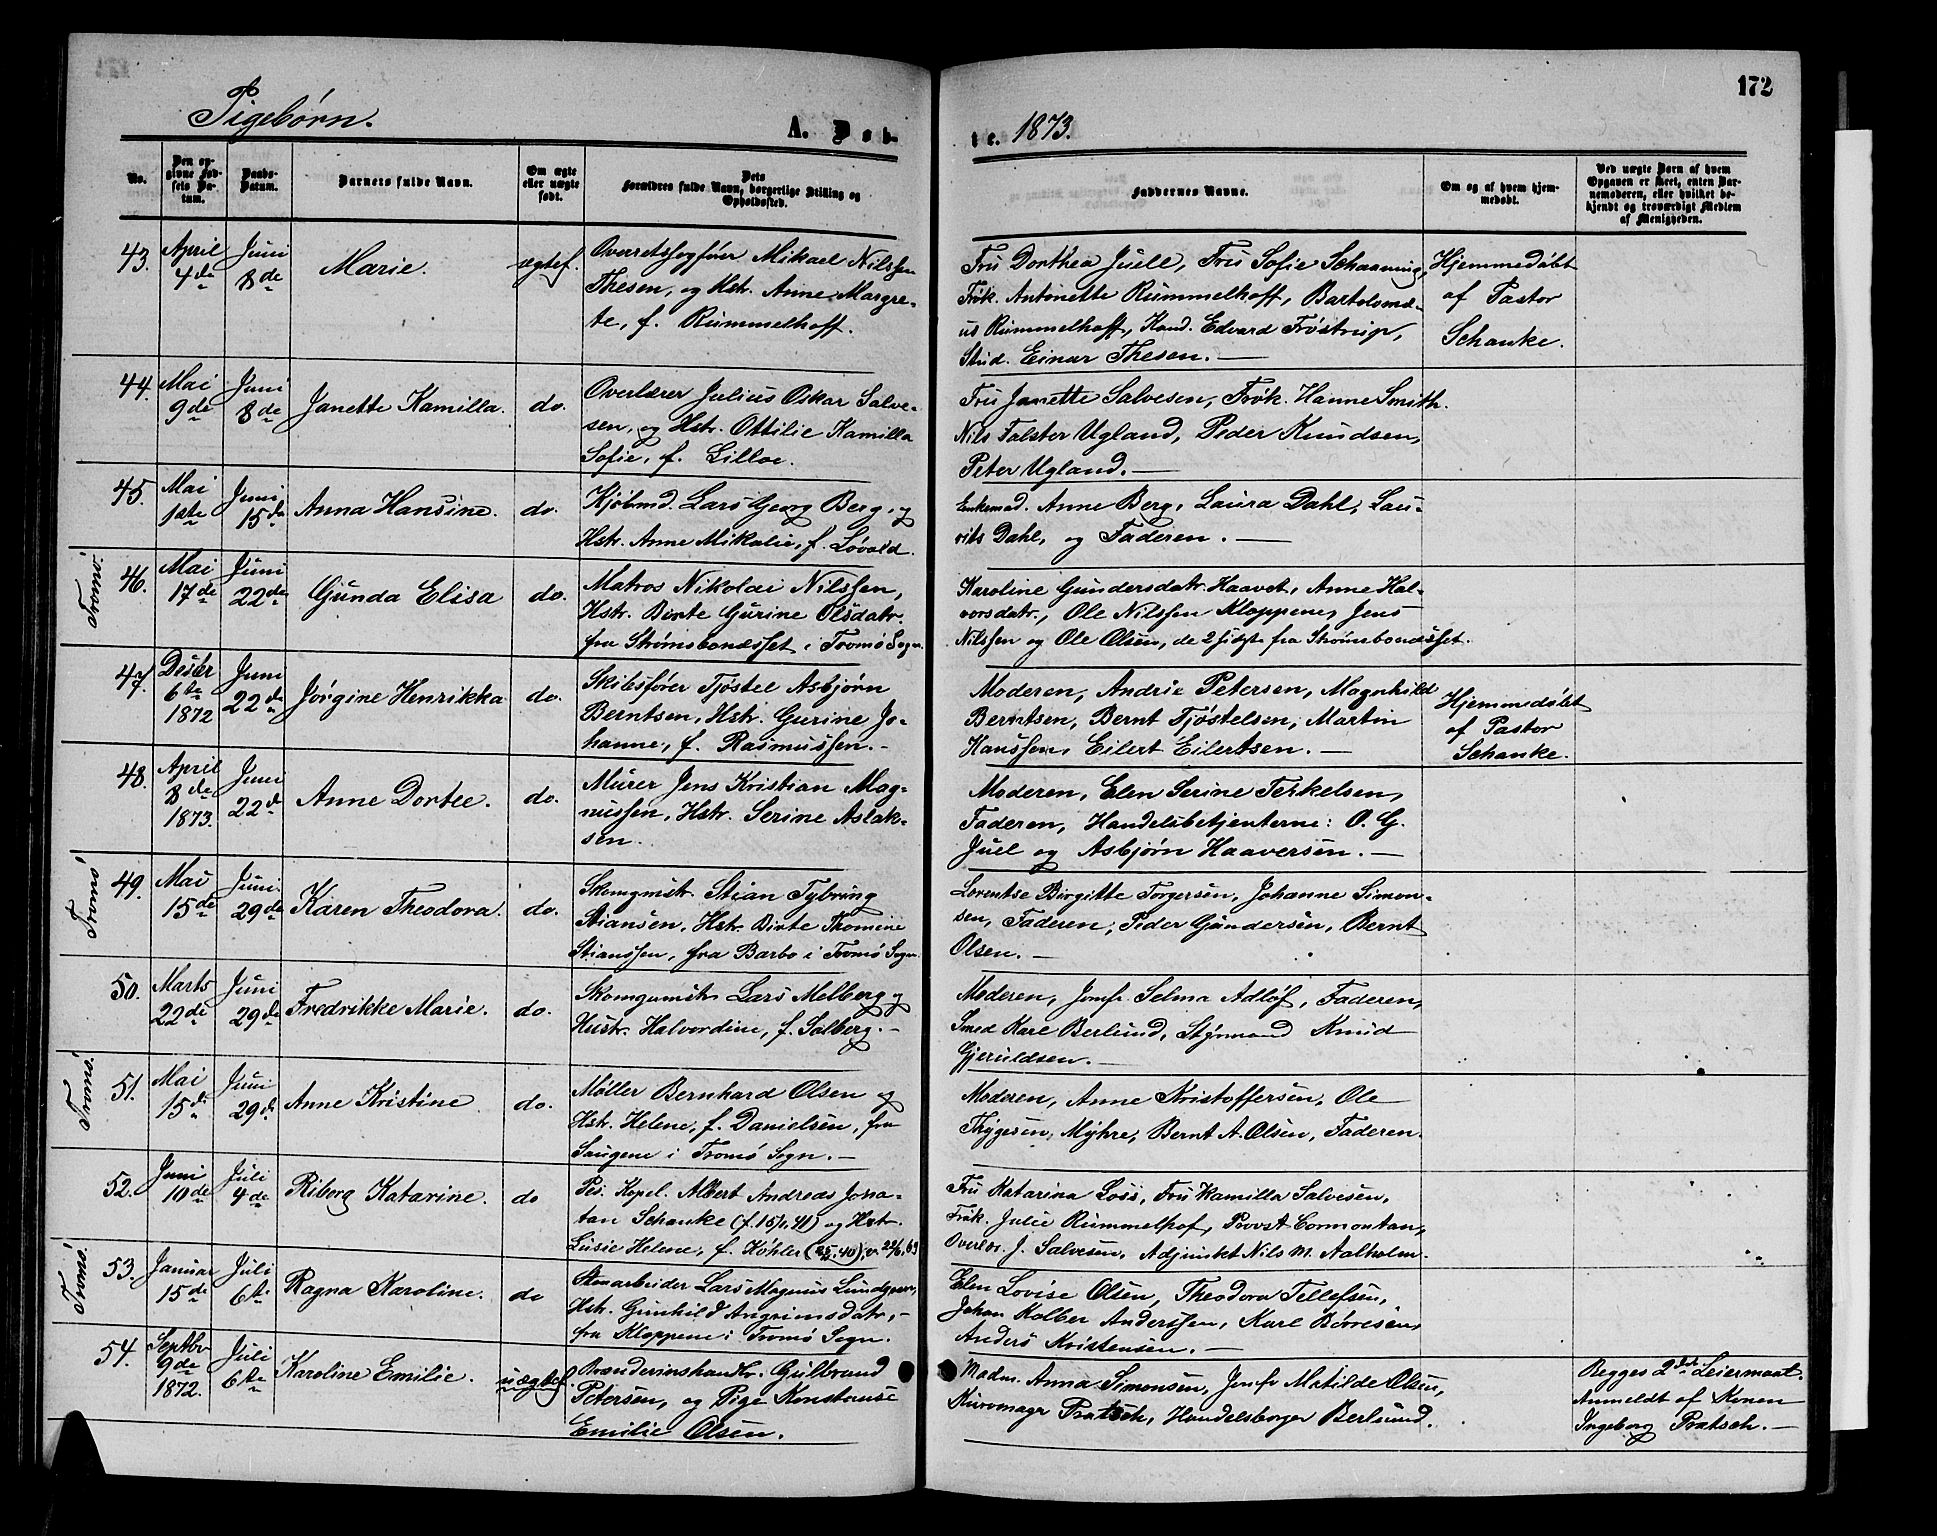 172
Pigebørn.
A. Døb-
te. 1873.
No.
Den op-
givne Fød-
sels Da-
tum.
Daabs-
Datum.
Barnets fulde Navn.
Om ægte
eller uægte
født.
Dets
Forældres fulde Navn, borgerlige Stilling og
Opholdssted.
Faddernes Navne.
Om og af hvem hjem-
medøbt.
Ved uægte Børn af hvem
Opgaven er skeet, enten Bar-
nemoderen, eller hvilket be-
kjendt og troværdigt Medlem
af Menigheden.
43. April 4de Juni 8de Marie. ægtef.
Overretssagfører Mikael Nilssen
Thesen, og Hstr. Anne Margre-
te, f. Rummelhoff.
Fru Dorthea Juell, Fru Sofie Schanning,
Frøk. Antonette Rummelhoff, Bartolomæ-
us Rummelhoff, Kand. Edvard Frøstrup,
Stud. Einar Thesen. —
Hjemmedøbt
af Pastor
Schanke.
44. Mai 9de Juni 8de Janette Kamilla. do.
Overlærer Julius Oskar Salve-
sen, og Hstr. Ottilie Kamilla
Sofie, f. Lilloe.
Fru Janette Salvesen, Frøk. Hanne Smith.
Nils Falster Ugland, Peder Knudsen,
Peter Ugland. —
45. Mai 1ste Juni 15de Anna Hansine. do.
Kjøbmd. Lars Georg Berg, og
Hstr. Anne Mikalie, f. Løvold.
Enkemad. Anne Berg, Laura Dahl, Lau-
rits Dahl, og Faderen. —
Tromø.
46. Mai 17de Juni 22de Gunda Elisa do.
Matros Nikolai Nilssen,
Hstr. Birte Gurine Olsdatr.
fra Strømsbondsset i Tromø Sogn.
Karoline Gundersdatr. Haavet, Anne Hal-
vorsdatr., Ole Nilssen Kloppene, Jens
Nilssen og Ole Olsen, de 2 sidste fra Strømsbondsset.
47. Desbr 6te 1872 Juni 22de Jørgine Henrikka do.
Skibsfører Tjøstel Asbjørn
Berntsen, Hstr. Gurine Jo-
hanne, f. Rasmussen. -
Moderen, Andrie Petersen, Magnhild
Berntsen, Bernt Tjøstelsen, Martin
Hanssen, Eilert Eilertsen. —
Hjemmedøbt
af Pastor
Schanke.
48. April 8de 1873. Juni 22de Anne Dortee. do.
Murer Jens Kristian Mag-
nussen, Hstr. Serine Aslak-
sen.
Moderen, Elen Serine Terkelsen,
Faderen, Handelsbetjenterne: O. G.
Juel og Asbjørn Haaversen. —
Tromø
49. Mai 15de Juni 29de Karen Theodora. do.
Skomgmstr. Stian Tybring
Stiansen, Hstr. Birte Thomine
Stianssen, fra Barbo i Tromø Sogn.
Lorentse Birgitte Torgersen, Johanne Simon-
sen, Faderen, Peder Gundersen, Bernt
Olsen. —
50. Marts 22de Juni 29de Fredrikke Marie. do.
Skomgumstr. Lars Melberg og
Hustr. Halvordine, f. Solberg. -
Moderen, Jomfr. Selma Adlöf, Faderen,
Smed Karl Berlund, Styrmand Knud
Gjeruldsen. —
Tromø.
51. Mai 15de Juni 29de Anne Kristine do.
Møller Bernhard Olsen og
Hstr. Helene, f. Danielsen, fra
Saugene i Tromø Sogn. —
Moderen, Anne Kristoffersen, Ole
Thygesen, Myhre, Bernt A. Olsen, Faderen.
52. Juni 10de Juli 4de Riborg Katarine. do
Pes. Kapel. Albert Andreas Jona-
tan Schanke (f. 15/1.41) og Hstr.
Lusie Helene, f. Køhler
Fru Katarina Loss, Fru Kamilla Salvesen,
Frøk. Julie Rummelhof, Provst Cormontan,
Overlær. J. Salvesen, Adjunkt Nils M. Aalholm.
Tromø.
53. Januar 15de Juli 6te Ragna Karoline. do
Stenarbeider Lars Magnus Lundgren,
Hstr. Gunhild Angrimsdatr, -
fra Kloppene i Tromø Sogn.
Elen Lovise Olsen, Theodora Tellefsen,
Johan Kolber Anderssen, Karl Børresen,
Anders Kristensen. —
54. Septbr 9de 1872. Juli 6te Karoline Emilie. uægtef.
Brænderinshandlr. Gulbrand
Petersen, og Pige Konstanse
Emilie Olsen.
Madm. Anna Simonsen, Jomfr Matilde Olsen,
Kuromagr Pratsch, Handelsborger Berlund.
Begges 2det Leiermaal.
Anmeldt af Konen
Ingeborg Pratsch. —